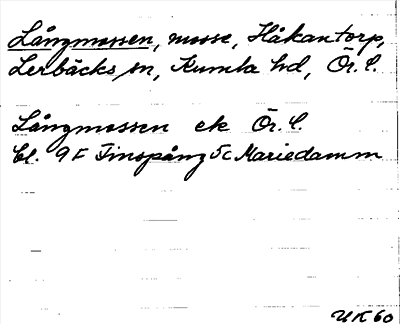 Långmossen, mosse, Håkantorp,
Lerbäcks sn, Kumla hd, Ör. l.
Långmossen ek Ör. l.
bl. 9F Finspång 5c Mariedamm
UK60